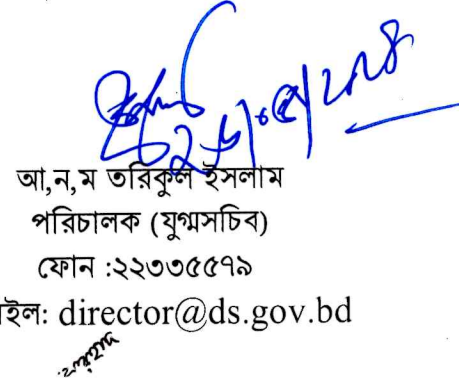 আ,ন,ম তরিকুল ইসলাম
পরিচালক (যুগ্মসচিব)
ফোন :২২৩৩৫৫৭৯
ইল: director@ds.gov.bd